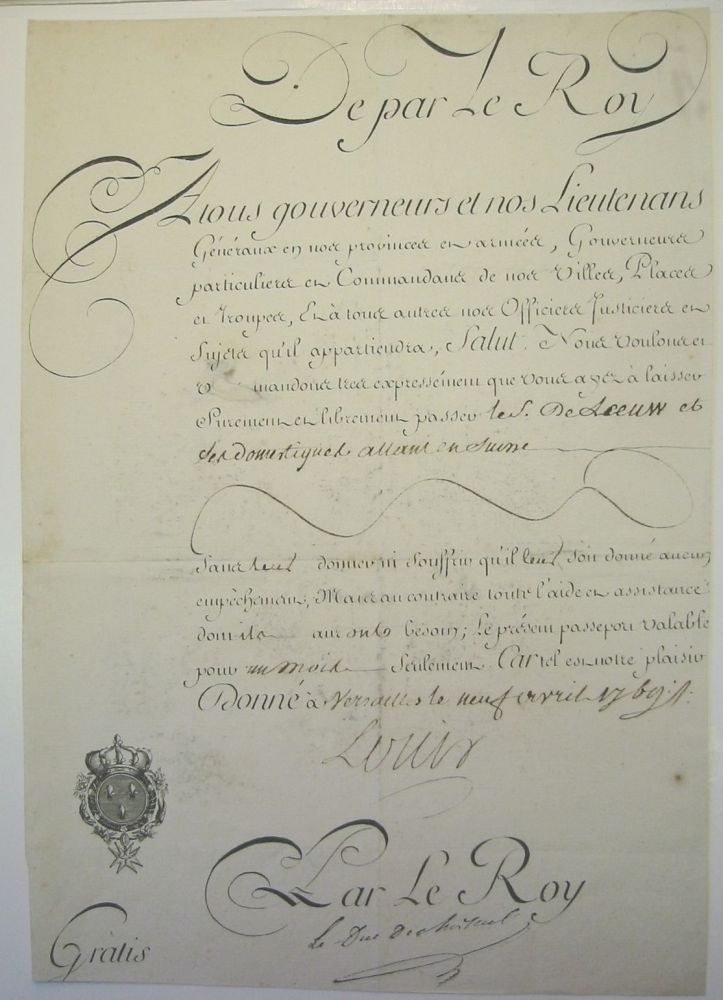 De par Le Roy
A tous gouverneurs et nos Lieutenans
Généraux en nos provinces et armées, Gouverneurs
particuliers et Commandans de nos Villes, Places
et Troupes, Et à tous autres nos Officiers Justiciers et
Sujets qu'il appartiendra, Salut. Nous voulons et
mandons tres expressément que vous ayez à laisser
Surement et librement passer le S. De Leeuw et
ses domestiques allant en Suisse
Sans leur donner ni souffrir qu'il leur soit donné aucun
empêchement, Mais au contraire toute l'aide et assistance
dont ils auront besoin; Le présent passeport valable
pour un mois Seulement. Car tel est notre plaisir
Donné à Versailles le neuf avril 1769
Louis
Par Le Roy
Le Duc de choiseul
Gratis